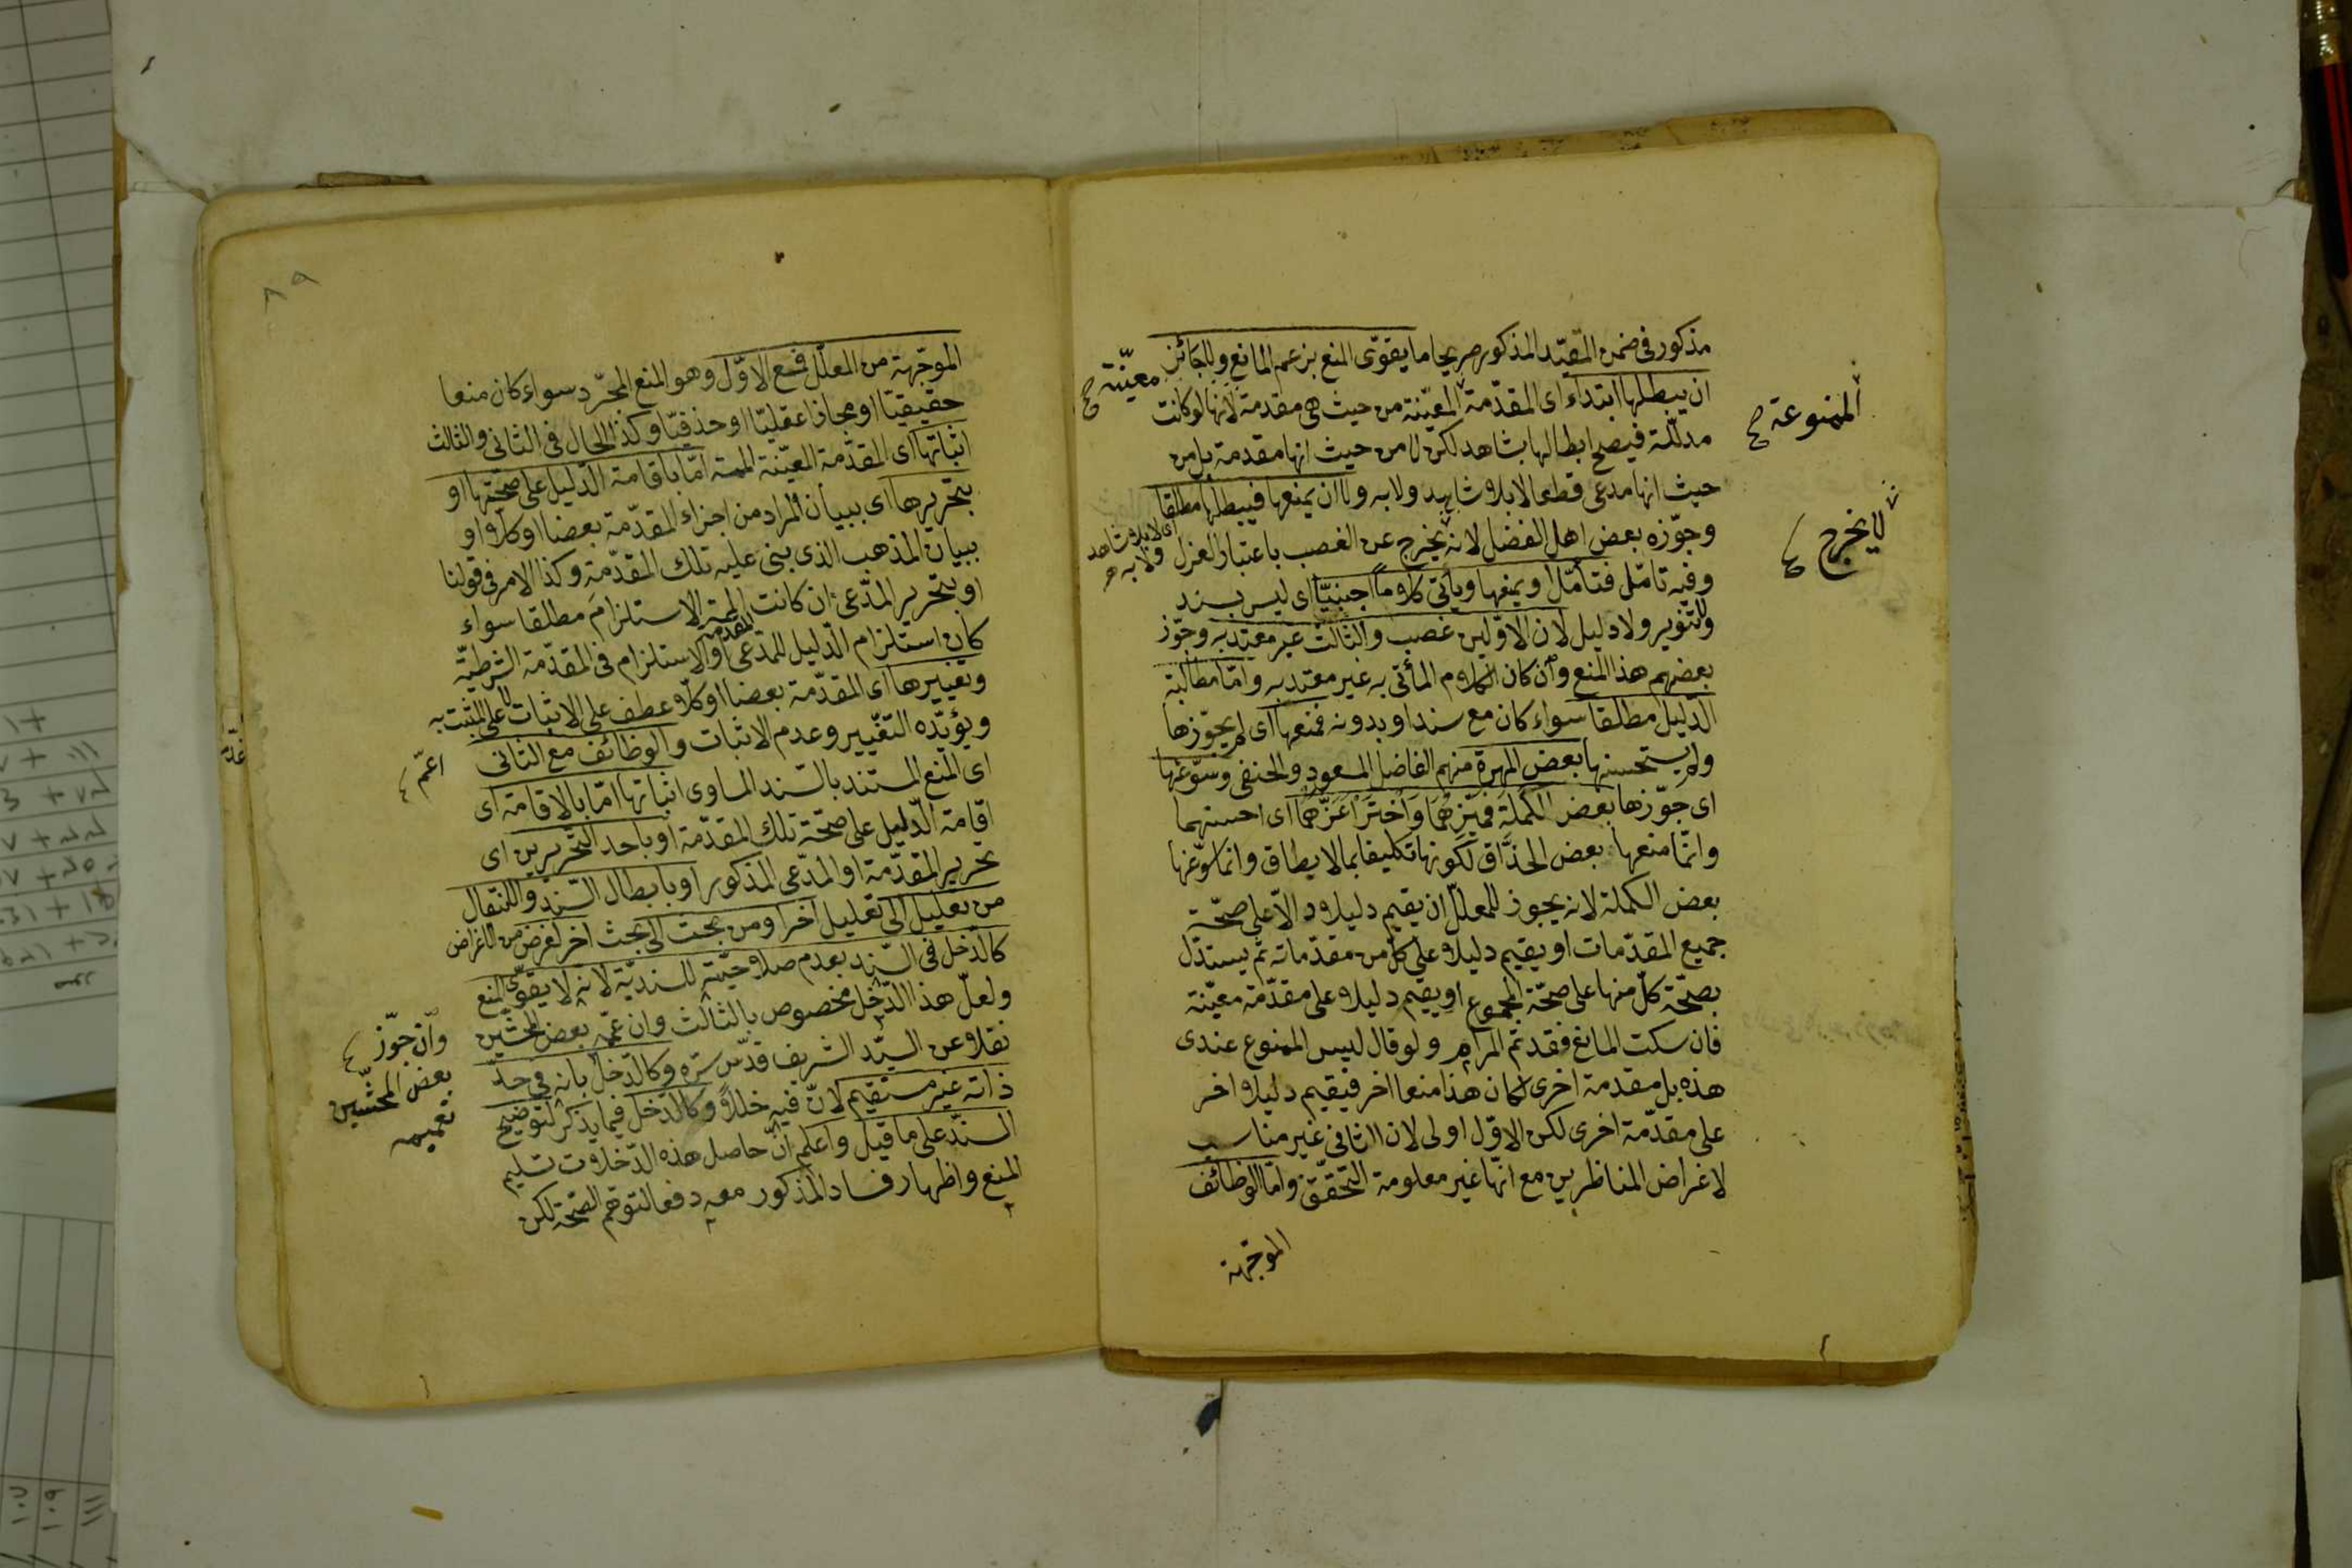 مذكور في ضمن المقيّد المذكور صريحا ما يقوّى المنع بزعم المانع ولا يجائز
ان يبطلها ابتداء اى المقدّمة المعيّنة من حيث هى مقدمة لانها لو كانت
معيّنة صح
الممنوعة صح
مدلّلة فيصح ابطالها بشاهد لكن لا من حيث انها مقدمة بل من
حيث انها مدعى قطعا لا بلا شاهد ولا به ولا ان يمنعها فيبطلها مطلقا
اى لا بلا شاهد
ولا به صح
وجوّزه بعض اهل الفضل لانه يخرج عن الغصب باعتبار العزل
لا يخرج
وفيه تامّل فتأمّل او يمنعها ويأتى كلاما اجنبيّا اى ليس بسند
ولا تنوير ولا دليل لان الاوّلين غصب والثالث غير معتد به وجوّز
بعضهم هذا المنع وان كان الكلام المأتى به غير معتد به وامّا مطالبة
الدّليل مطلقا سواء كان مع سند او بدونه فمنعها اى لم يجوّزها
ولم يستحسنها بعض المهرة منهم الفاضل المسعود والحنفى وسوّغها
اى جوّزها بعض الكملة فميّزهما واختر اعزّهما اى احسنهما
وانّما منعها بعض الحذّاق لكونها تكليفا بما لا يطاق وانما سوّغها
بعض الكملة لانه يجوز للمعلّل ان يقيم دليلا دالا على صحّة
جميع المقدّمات او يقيم دليلا على كلّ من مقدّماته ثم يستدل
بصحّة كلّ منها على صحّة المجموع او يقيم دليلا على مقدّمة معيّنة
فان سكت المانع فقد تم المرام ولو قال ليس الممنوع عندى
هذه بل مقدمة اخرى لكان هذا منعا اخر فيقيم دليلا اخر
على مقدّمة اخرى لكن الاوّل اولى لان الثانى غير مناسب
لاغراض المناظرين مع انّها غير معلومة التحقّق وامّا الوظائف
الموجّهة
٨٩
الموجّهة من المعلّل فمع الاوّل وهو المنع المجرّد سواء كان منعا
حقيقيّا او مجازا عقليّا او حذفيّا وكذا الحال فى الثانى والثالث
اثباتها اى المقدّمة المعيّنة امّا باقامة الدّليل على صحّتها او
بتحريرها اى ببيان المراد من اجزاء المقدّمة بعضا او كلا او
ببيان المذهب الذى بنى عليه تلك المقدّمة وكذا الامر فى قولنا
او بتحرير المدّعى ان كانت المقدمة الاستلزام مطلقا سواء
كان استلزام الدّليل للمدّعى او الاستلزام فى المقدّمة الشرطيّة
وتغييرها اى المقدّمة بعضا او كلا عطف على الاثبات لا على المثبت به
ويؤيّده التغيير وعدم الاثبات والوظائف مع الثانى
اعمّ
اى المنع المستند بالسّند المساوى اثباتها امّا بالاقامة اى
اقامة الدّليل على صحّة تلك المقدّمة او باحد التحريرين اى
تحرير المقدّمة او المدّعى المذكور او بابطال السّند والانتقال
من تعليل الى تعليل اخر او من بحث الى بحث اخر لغرض من الاغراض
كالدّخل فى السّند بعدم صلاحيّته للسنديّة لانه لا يقوّى المنع
ولعلّ هذا الدّخل مخصوص بالثالث وان عمّه بعض المحشّين
وان جوّز
بعض المحشّيين
تعميمه
نقلا عن السيّد الشريف قدّس سرّه وكالدّخل بانه فى حدّ
ذاته غير مستقيم لانّ فيه خللا وكالدّخل فيما يذكر لتوضيح
السند على ما قيل واعلم انّ حاصل هذه الدّخلات تسليم
المنع واظهار فساد المذكور معه دفعا لتوهّم الصّحة لكن